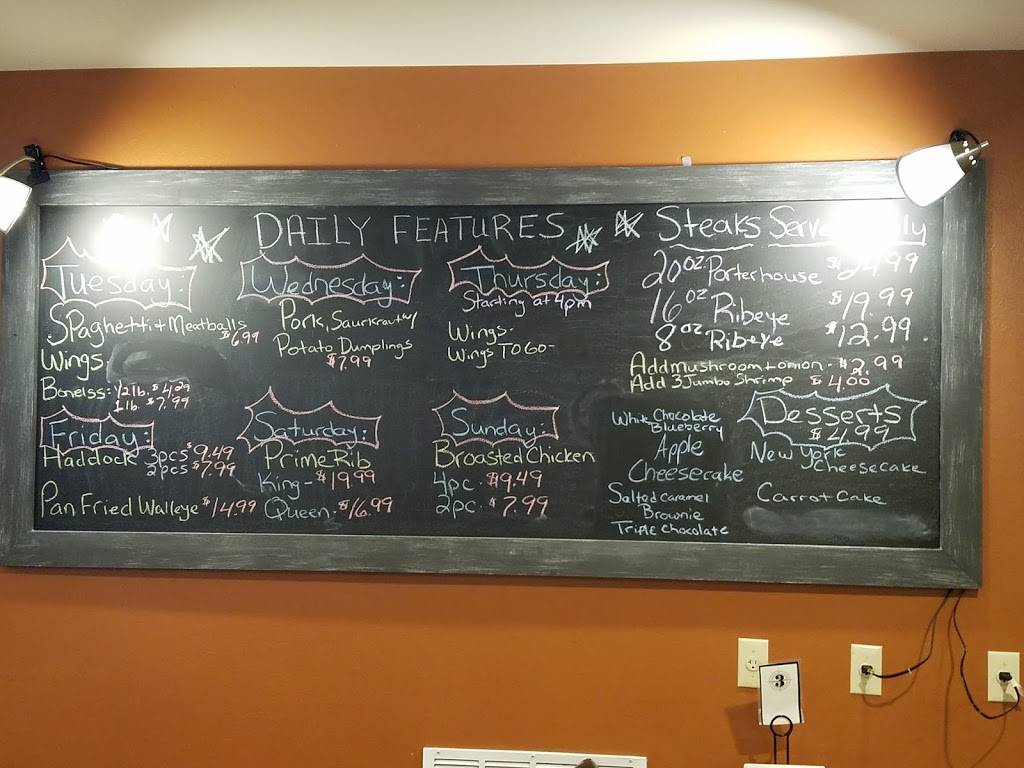 DAILY FEATURES
Tuesday:
Spaghetti + Meatballs
$6.99
Wings
Boneless: 1/2 lb. $4.29
1 lb. $7.99
Wednesday:
Pork, Saurkraut w/
Potato Dumplings
$7.99
Thursday:
Starting at 4pm
Wings-
Wings TO GO-
Friday:
Haddock 3pcs $9.49
2pcs $7.99
Pan Fried Walleye $14.99
Saturday:
Prime Rib
King - $19.99
Queen - $16.99
Sunday:
Broasted Chicken
4pc. $9.49
2pc. $7.99
Steaks
20oz Porterhouse $24.99
16oz Ribeye $19.99
8oz Ribeye $12.99
Add mushroom + onion - $2.99
Add 3 Jumbo Shrimp $4.00
White Chocolate
Blueberry
Apple
Cheesecake
Salted Caramel
Brownie
Triple Chocolate
Desserts
$4.99
New York
Cheesecake
Carrot Cake
3